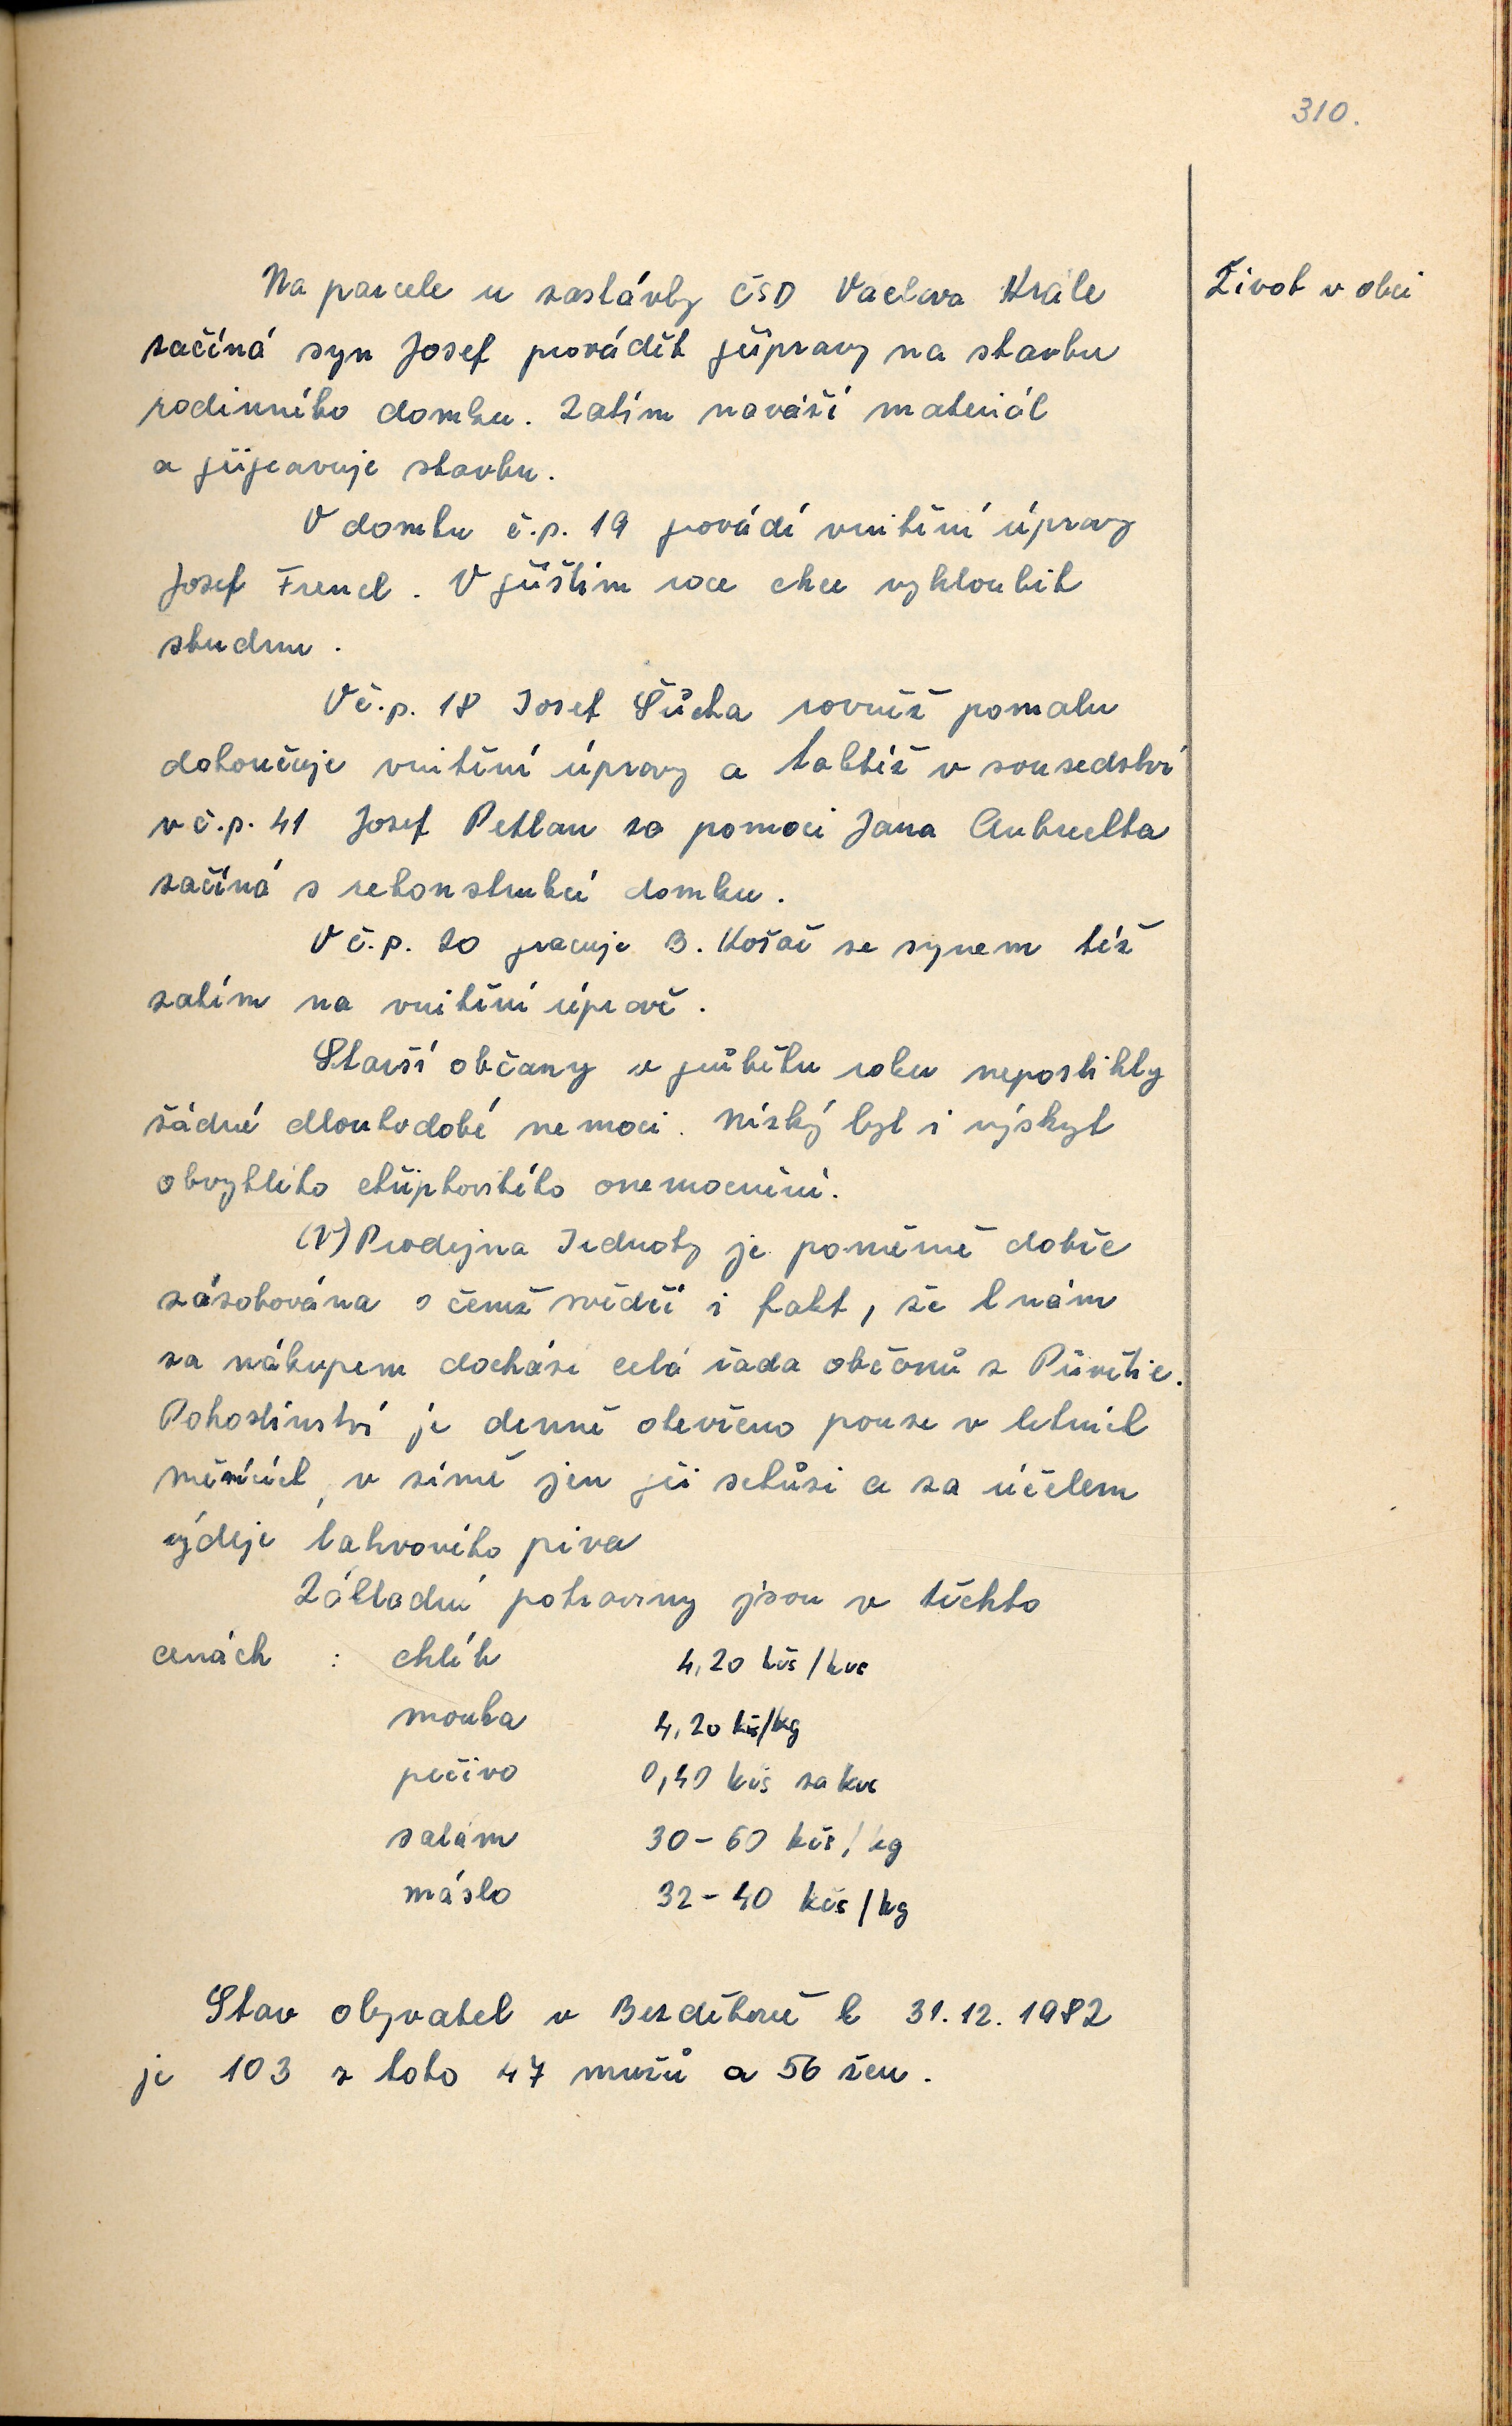 310.
Život v obci
Na parcele u zastávky ČSD Václava Krále
začíná syn Josef provádět přípravy na stavbu
rodinného domku. Zatím naváží materiál
a připravuje stavbu.
V domku č.p. 19 provádí vnitřní úpravy
Josef Frencl. V příštím roce chce vyhloubit
studnu.
V č.p. 18 Josef Šůcha rovněž pomalu
dokončuje vnitřní úpravy a taktéž v sousedství
v č.p. 41 Josef Petlan za pomoci Jana
začíná s rekonstrukcí domku.
V č.p. 20 pracuje B. Košař se synem též
zatím na vnitřní úpravě.
Starší občany v průběhu roku nepostihly
žádné dlouhodobé nemoci. Nízký byl i výskyt
obvyklého chřipkovitého onemocnění.
(V) Prodejna Jednoty je poměrně dobře
zásobována o čemž svědčí i fakt, že k nám
za nákupem dochází celá řada občanů z Přívětic.
Pohostinství je denně otevřeno pouze v letních
měsících, v zimě jen při schůzi a za účelem
výdeje lahvového piva
Základní potraviny jsou v těchto
cenách : chléb 4,20 kčs/kus
mouka 4,20 kčs/kg
pečivo 0,40 kčs za kus
salám 30-60 kčs/kg
máslo 32-40 kčs/kg
Stav obyvatel v Bezděkově k 31.12.1982
je 103 z toho 47 mužů a 56 žen.